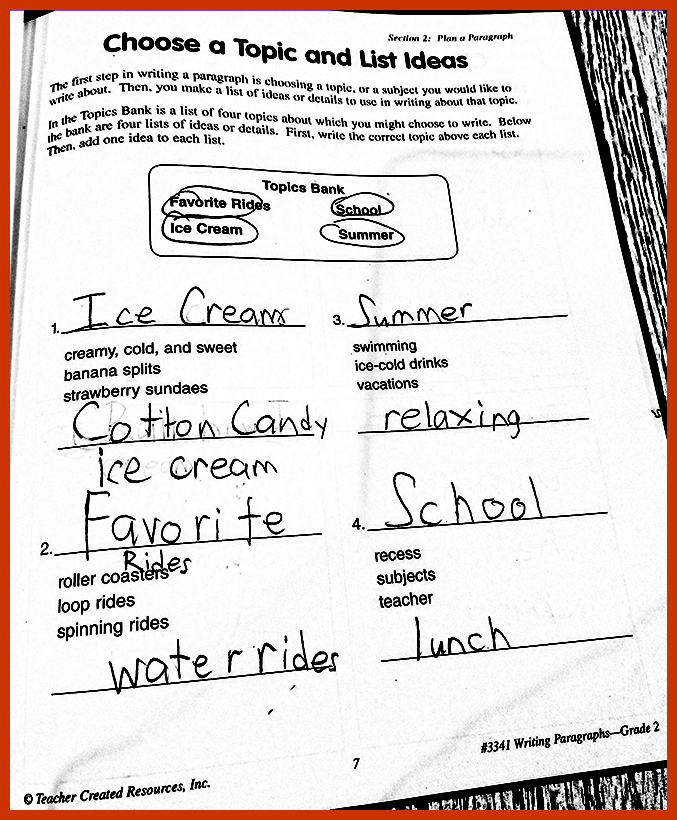 Section 2: Plan a Paragraph
Choose a Topic and List Ideas
The first step in writing a paragraph is choosing a topic, or a subject you would like to
write about. Then, you make a list of ideas or details to use in writing about that topic.
In the Topics Bank is a list of four topics about which you might choose to write. Below
the bank are four lists of ideas or details. First, write the correct topic above each list.
Then, add one idea to each list.
Topics Bank
Favorite Rides
School
Ice Cream
Summer
1. Ice Cream
creamy, cold, and sweet
banana splits
strawberry sundaes
Cotton Candy
ice cream
2. Favorite
Rides
roller coasters
loop rides
spinning rides
water rides
3. Summer
swimming
ice-cold drinks
vacations
relaxing
4. School
recess
subjects
teacher
lunch
© Teacher Created Resources, Inc.
7
#3341 Writing Paragraphs—Grade 2